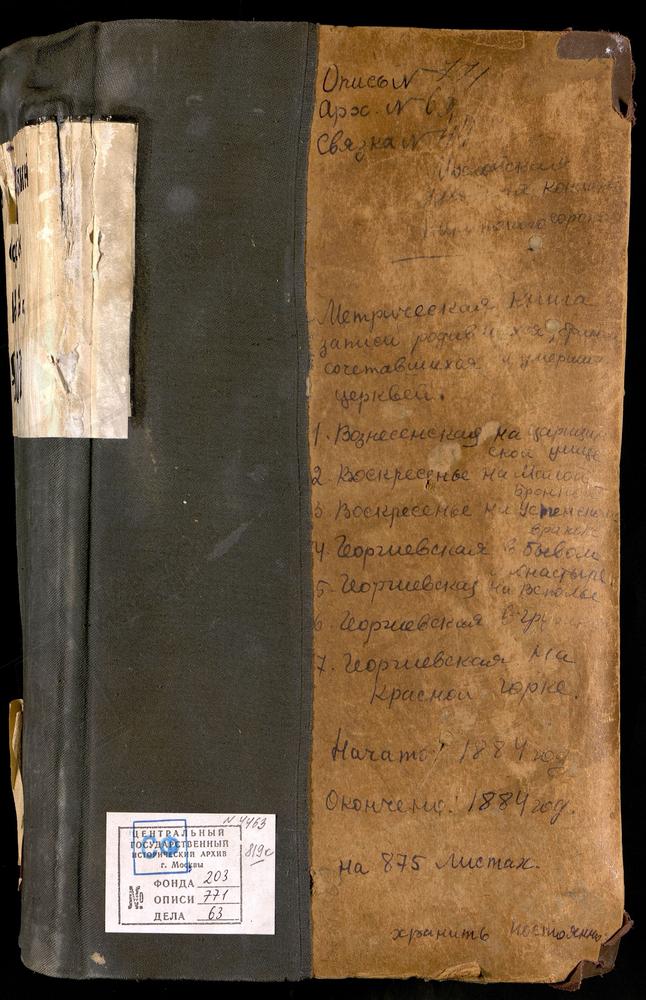 Опись N 771
Арх. N 63
Связка N
Московская
Метрическая книга
записи родившихся, браком
сочетавшихся и умерших
церквей.
1. Вознесенская на Царицын
ской улице
2. Воскресенье на Малой
Бронной
3. Воскресенье на Успенском
вражке
4. Георгиевская в бывом
монастыре
5. Георгиевская на Всполье
6. Георгиевская в Грузинах
7. Георгиевская на
Красной горке.
Начато: 1884 год
Окончено: 1884 год.
на 875 листах.
хранить постоянно.
N 4463
819с
ЦЕНТРАЛЬНЫЙ
ГОСУДАРСТВЕННЫЙ
ИСТОРИЧЕСКИЙ АРХИВ
г. Москвы
ФОНДА 203
ОПИСИ 771
ДЕЛА 63